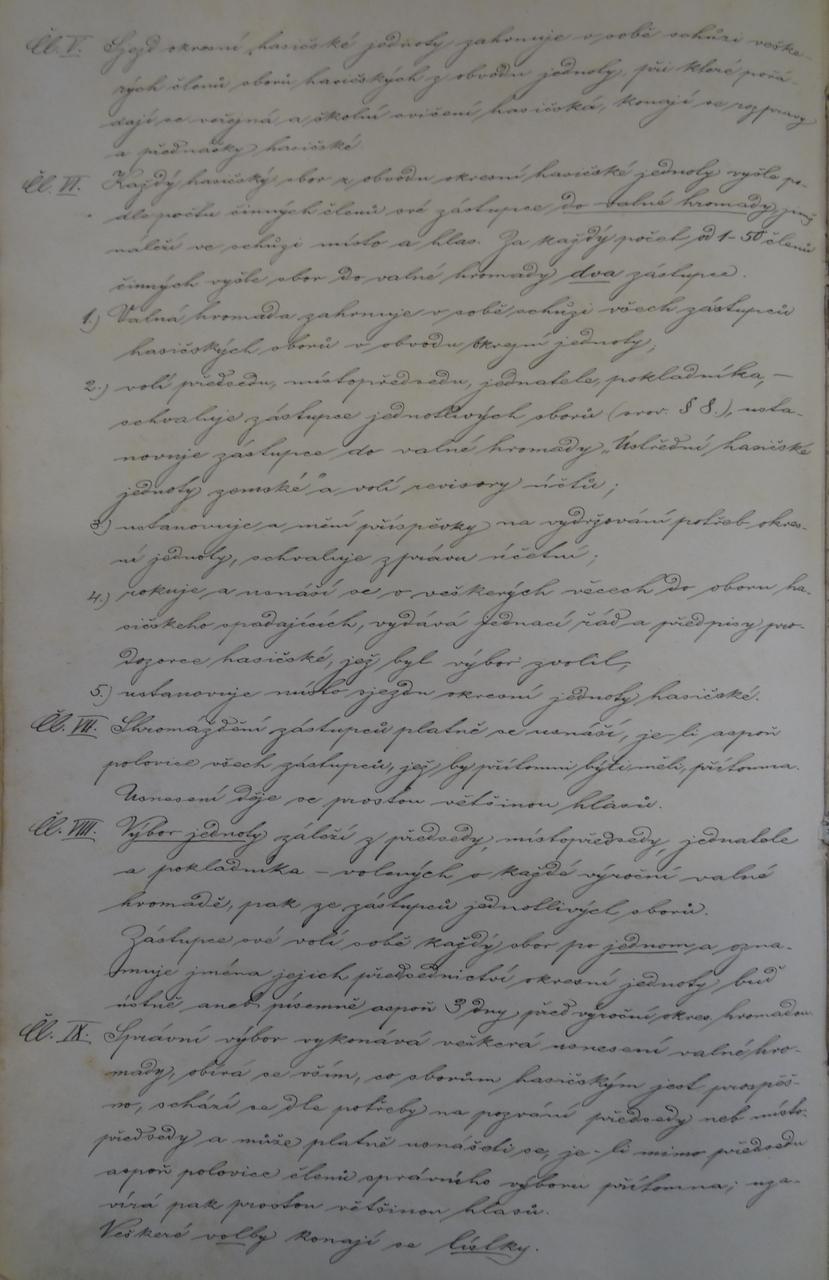 Čl. V. Sjezd okresní hasičské jednoty zahrnuje v sobě schůzi veške-
rých členů sborů hasičských z obvodu jednoty, při které pořá-
dají se veřejná a školní cvičení hasičská, konají se rozpravy
a přednášky hasičské.
Čl. VI. Každý hasičský sbor z obvodu okresní hasičské jednoty vyšle po-
dle počtu činných členů své zástupce do valné hromady, jimž
náleží ve schůzi místo a hlas. Za každý počet od 1-50 členů
činných vyšle sbor do valné hromady dva zástupce.
1.) Valná hromada zahrnuje v sobě schůzi všech zástupců
hasičských sborů v obvodu okresní jednoty;
2.) volí předsedu, místopředsedu, jednatele, pokladníka, –
schvaluje zástupce jednotlivých sborů (srov. § 8.), usta-
novuje zástupce do valné hromady „Ústřední hasičské
jednoty zemské" a volí revisory účtů;
3.) ustanovuje a mění příspěvky na vydržování potřeb okres-
ní jednoty, schvaluje zprávu účetní;
4.) rokuje a usnáší se o veškerých věcech do oboru ha-
sičskeho spadajících, vydává jednací řád a předpisy pro
dozorce hasičské, jež byl výbor zvolil,
5.) ustanovuje místo sjezdu okresní jednoty hasičské.
Čl. VII. Shromáždění zástupců platně se usnáší, je-li aspoň
polovice všech zástupců, jež by přítomni býti měli, přítomna.
Usnesení děje se prostou většinou hlasů.
Čl. VIII. Výbor jednoty záleží z předsedy, místopředsedy, jednatele
a pokladníka – volených o každé výroční valné
hromadě, pak ze zástupců jednotlivých sborů.
Zástupce své volí sobě každý sbor po jednom a ozna-
muje jména jejich předsednictví okresní jednoty buď
ústně aneb písemně aspoň 3 dny před výroční okres. hromadou.
Čl. IX. Správní výbor vykonává veškerá usnesení valné hro-
mady, obírá se vším, co sborům hasičským jest prospěš-
no, schází se dle potřeby na pozvání předsedy neb místo-
předsedy a může platně usnášeti se, je-li mimo předsedu
aspoň polovice členů správního výboru přítomna; uza-
vírá pak prostou většinou hlasů.
Veškeré volby konají se lístky.